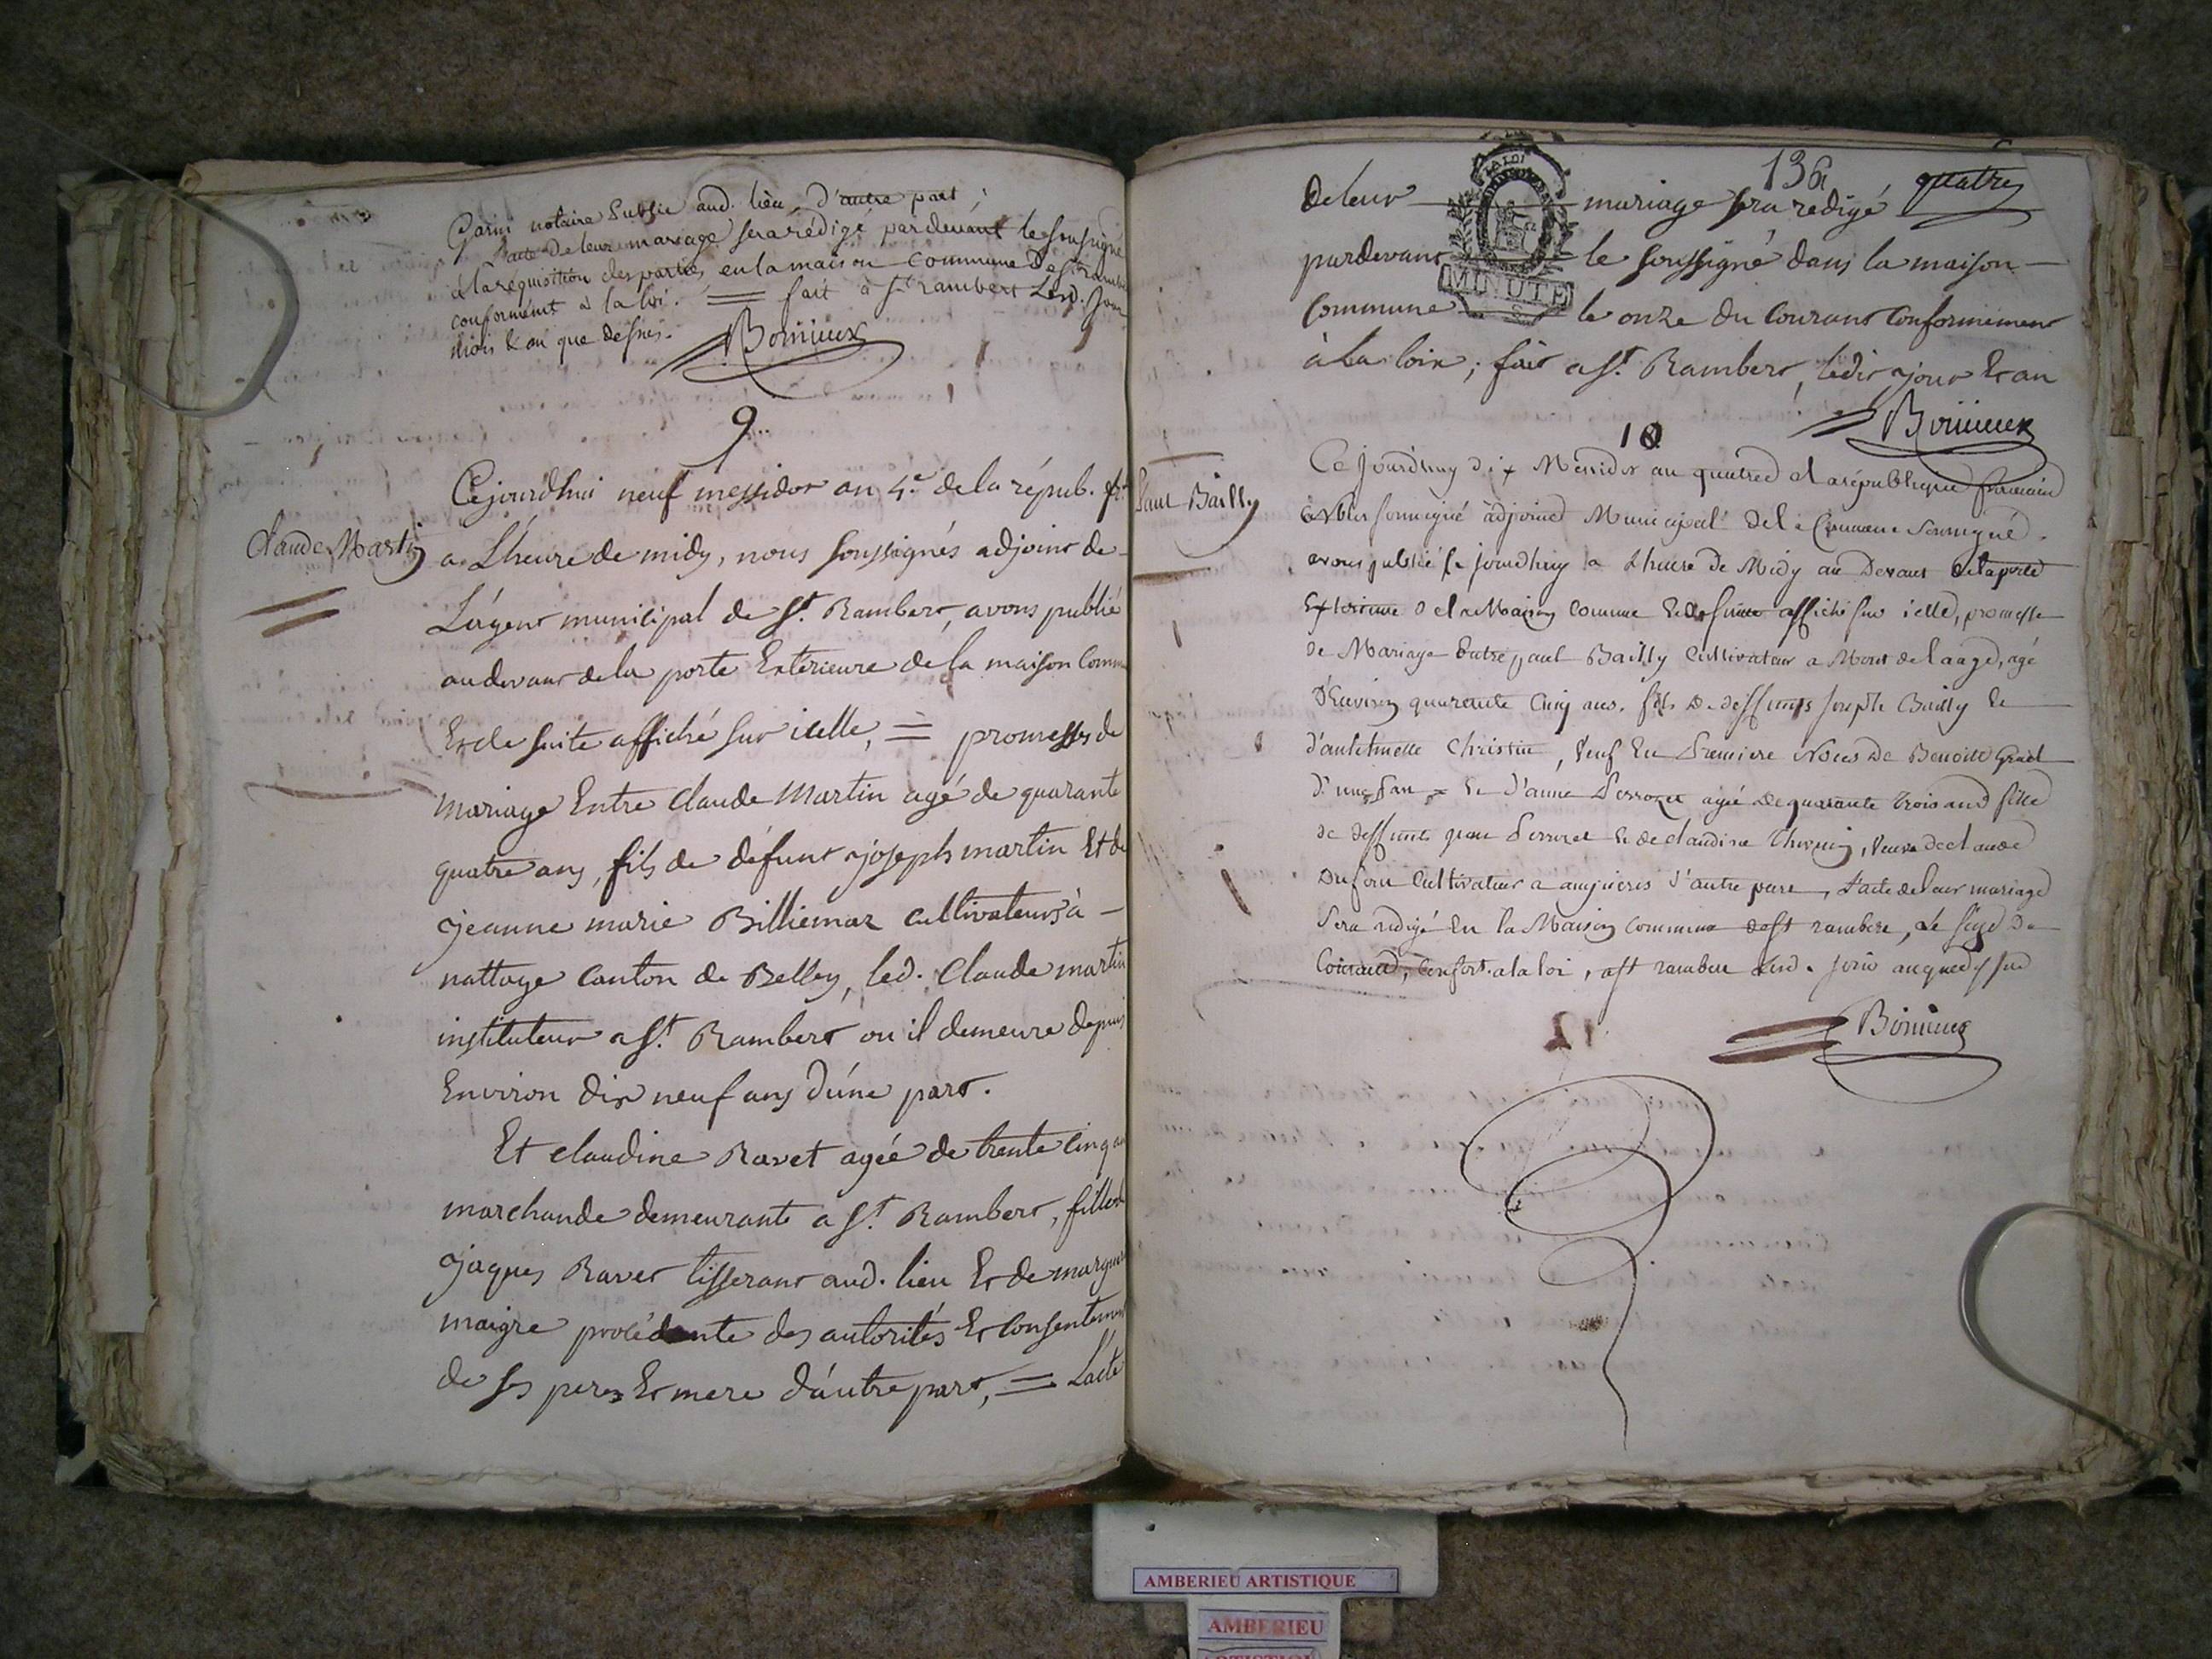 Garin notaire public aud. lieu, d'autre part;
l'acte de leur mariage sera rédigé pardevant le soussigné
à la réquisition des parties en la maison commune de St rambert
conformémt à la loi. = fait à St rambert Lesd. Jour
mois & an que dessus.
Bonieux
9
Cejourdhui neuf messidor an 4.e de la répub. fr.
Claude Martin
a L'heure de midy, nous soussignés adjoint de
L'agent municipal de St. Rambert, avons publié
au devant de la porte Extérieure de la maison Comm
Et de suite affiché sur icelle, = promesses de
mariage Entre Claude Martin agé de quarante
quatre ans, fils de défunt joseph martin Et de
jeanne marie Billiemaz cultivateurs à
nattage canton de Belley, led. Claude martin
instituteur a St. Rambert ou il demeure depuis
Environ dix neuf ans d'une part.
Et claudine Ravet agée de trente cinq an
marchande demeurante a St. Rambert, fille de
jaques Ravet tisserant aud. lieu Et de margue
maigre procédente des autorités Et consentement
de ses peres Et mere d'autre part, = L'acte
136 quatre
de leur mariage sera redigé
pardevant le soussigné dans la maison
Commune le onze du Courant Conformement
à la loix; fait a St. Rambert, ledit jour Et an
MINUTE
Bonieux
10
Ce Jourdhuy dix Messidor an quatre de la république
Paul Bailly
soussigné adjoint Municipal de la Commune soussigné
avons publié ce jourdhuy a Lheure de Midy au Devant de la porte
Exterieure de la Maison commune Et de suitte affiché sur icelle, promesse
de Mariage Entre paul Bailly Cultivateur a Mont de laage, agé
d'Environ quarente Cinq ans. fils de deffunts Joseph Bailly Et
d'anthelmette Christin, Veuf En Premiere Noces de Benoitte
d'une part = Et d'anne Perroret agée de quarante trois ans fille
de deffunts Perroret Et de claudine, Veuve de claude
Dufour Cultivateur a d'autre part, L'acte de leur mariage
Sera redigé En la Maison commune de St rambert, Le seize Du
Courant, Confort. a la loi, a St rambert Lesd. Jour an que dessus
Bonieux
AMBERIEU ARTISTIQUE
AMBERIEU
ARTISTIQUE